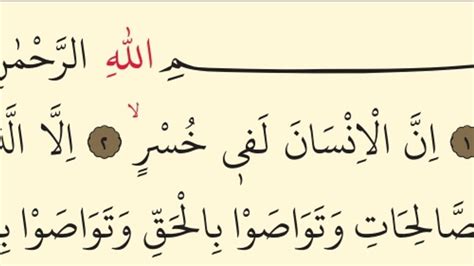 ـمِ اللّٰهِ الرَّحْمٰنِ
١ اِنَّ الْاِنْسَانَ لَفٖي خُسْرٍۙ ٢ اِلَّا الَّ
صَّالِحَاتِ وَتَوَاصَوْا بِالْحَقِّ وَتَوَاصَوْا بِ